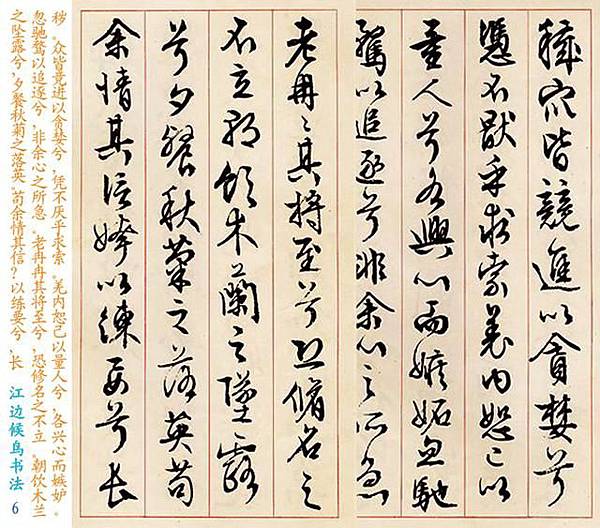 穢衆皆競進以貪婪兮
憑不猒乎求索羌内恕己以
量人兮各興心而嫉妬忽馳
騖以追逐兮非余心之所急
老冉〻其將至兮恐脩名之
不立朝飲木蘭之墜露
兮夕餐秋菊之落英苟
余情其信姱以練要兮長
秽,众皆竞进以贪婪兮,凭不厌乎求索。羌内恕己以量人兮,各兴心而嫉妒。
忽驰骛以追逐兮,非余心之所急。老冉冉其将至兮,恐修名之不立。朝饮木兰
之坠露兮,夕餐秋菊之落英。苟余情其信?以练要兮,长 江边候鸟书法 6